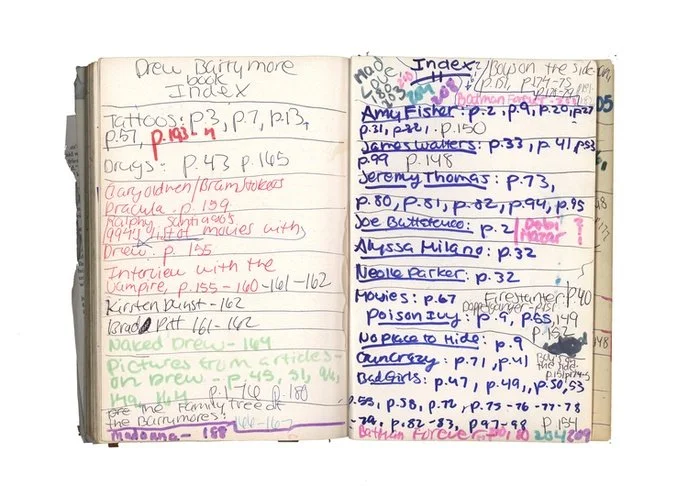 Drew Barrymore
book
Index
Tattoos: p.3, p.7, p.13,
p.57, p.193-4
Drugs: p.43 p.165
Gary oldmen/Bram stokers
Dracula - p.159
Ralphy Santiago's
1994's list of movies with
Drew - p.155
Interview with the
Vampire p.155-160-161-162
Kirsten Dunst - 162
Brad Pitt 161-162
Naked Drew - 164
Pictures from articles-
on Drew - p.45, 51,
149, 164 p.1-76 p.180
pre The Family tree of
the Barrymores: 166-167
Madonna - 188
Mad
Love
203
204
208
Index
Boys on the side
p.151, p.174-75
Batman Forever
Amy Fisher: p.2, p.9, p.20, p.27
p.31, p.32, p.150
James Walters: p.33, p.41, p.53
p.99 p.148
Jeremy Thomas: p.73,
p.80, p.81, p.82, p.94, p.95
Joe Buttafuco: p.2 Debi
Mazar ?
Alyssa Milano: p.32
Neole Parker: p.32
Movies: p.67 Firestarter p.40
Doppelganger - p.151
Poison Ivy: p.9, p.65, 149
p.152
No place to Hide: p.9
Guncrazy: p.71, p.41
Boys on
the side
Bad Girls: p.47, p.49, p.50, 53
p.55, p.58, p.72, p.75-76-77-78
-79, p.82-83, p.97-98 p.154
Batman Forever 180 204 209